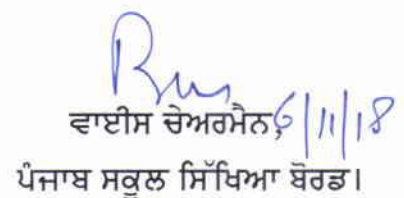 ਵਾਈਸ ਚੇਅਰਮੈਨ, 6/11/18
ਪੰਜਾਬ ਸਕੂਲ ਸਿੱਖਿਆ ਬੋਰਡ।